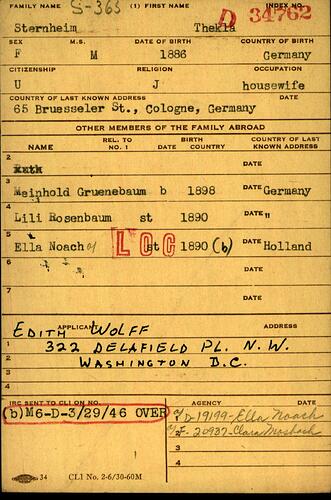 FAMILY NAME S-365 (1) FIRST NAME INDEX NO.
D 34762
Sternheim Thekla
SEX M.S. DATE OF BIRTH COUNTRY OF BIRTH
F M 1886 Germany
CITIZENSHIP RELIGION OCCUPATION
U J housewife
COUNTRY OF LAST KNOWN ADDRESS DATE
65 Bruesseler St., Cologne, Germany
OTHER MEMBERS OF THE FAMILY ABROAD
NAME REL. TO NO. 1 BIRTH DATE COUNTRY COUNTRY OF LAST KNOWN ADDRESS
2 DATE
3 Meinhold Gruenebaum b 1898 DATE Germany
4 Lili Rosenbaum st 1890 DATE "
5 Ella Noach a/ LOC st 1890 (b) DATE Holland
6 DATE
7 DATE
APPLICANT ADDRESS
EDITH WOLFF
1 322 DELAFIELD PL. N.W.
2 WASHINGTON D.C.
3
4
IRC SENT TO CLI ON NO. AGENCY DATE
(b) M6-D-3/29/46 OVER
1 a/ D-19199-Ella Noach
2 F-20937-Clara Mosbach
3
4
34 CLI No. 2-6/30-60M